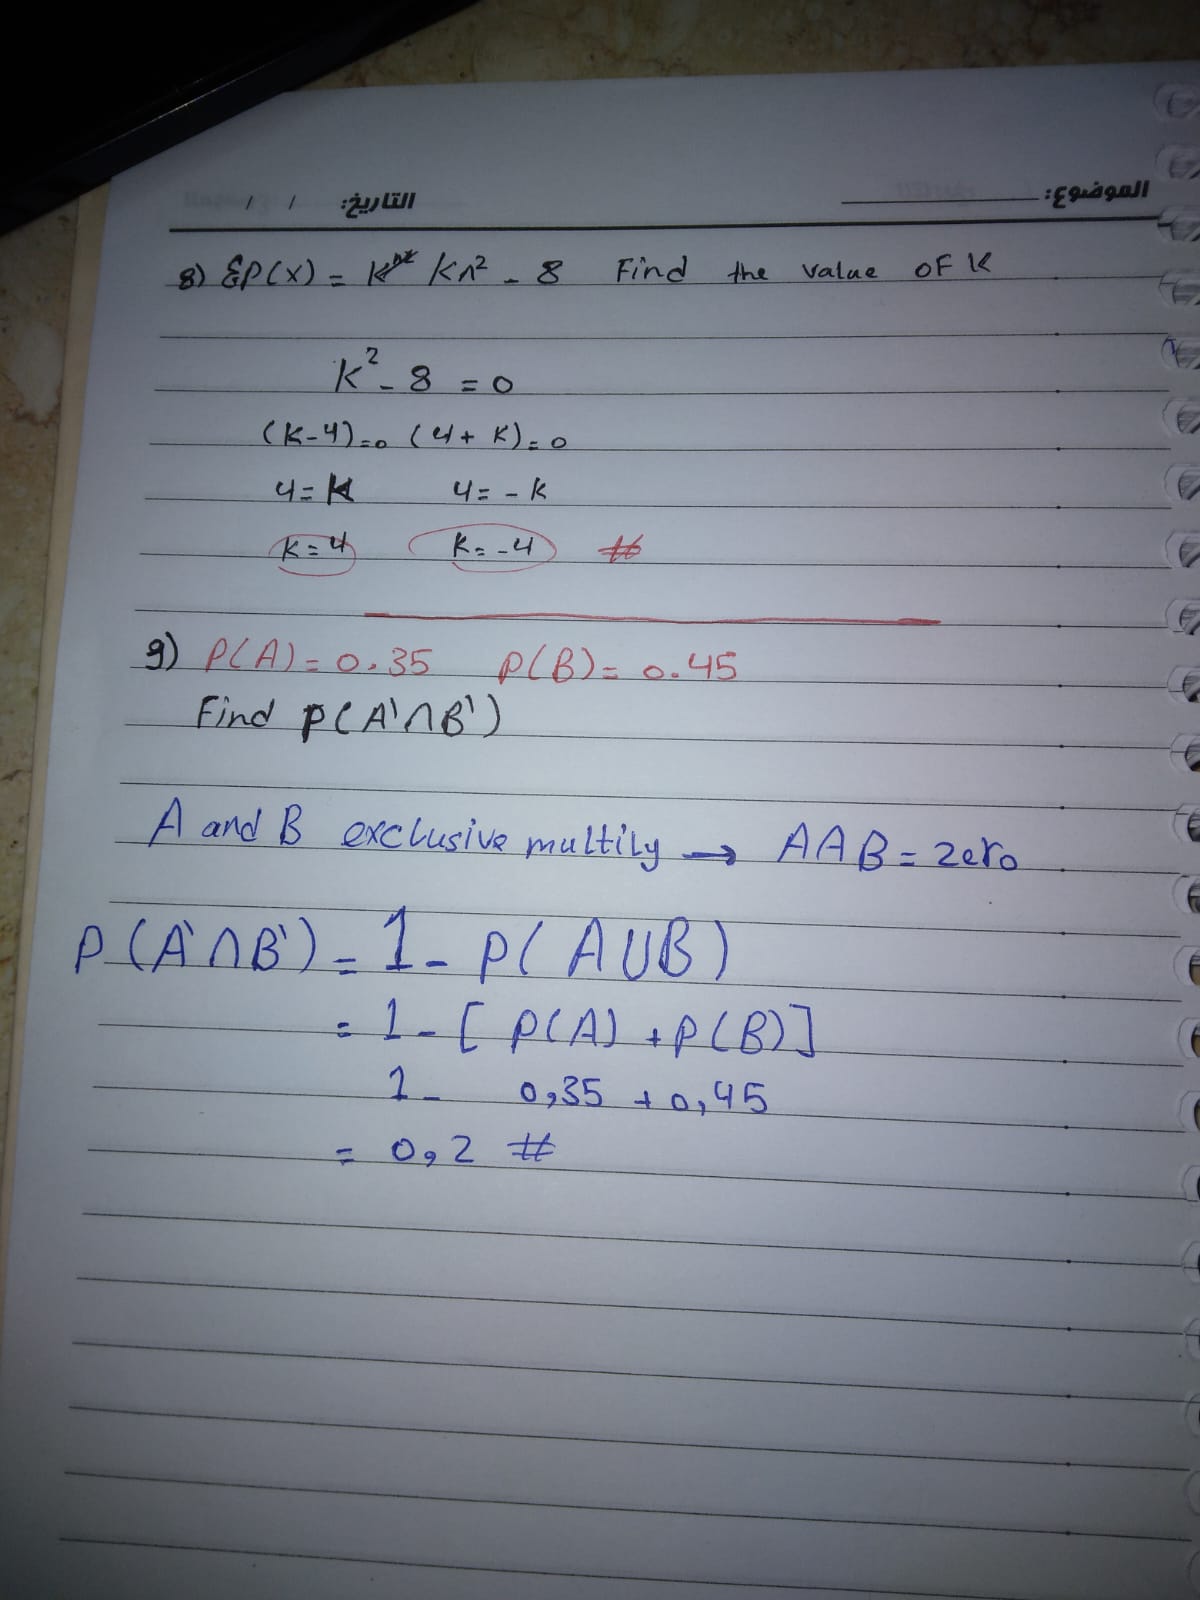 الموضوع: التاريخ: / /
8) ΣP(x) = K^2 - 8 Find the value of K
K² - 8 = 0
(K-4)=0 (4+K)=0
4=K 4=-K
K=4 K=-4 #
9) P(A)=0.35 P(B)=0.45
Find P(A'∩B')
A and B exclusive multily → AAB = zero
P(A'∩B') = 1 - P(AUB)
= 1 - [P(A) + P(B)]
1 - 0,35 + 0,45
= 0,2 #